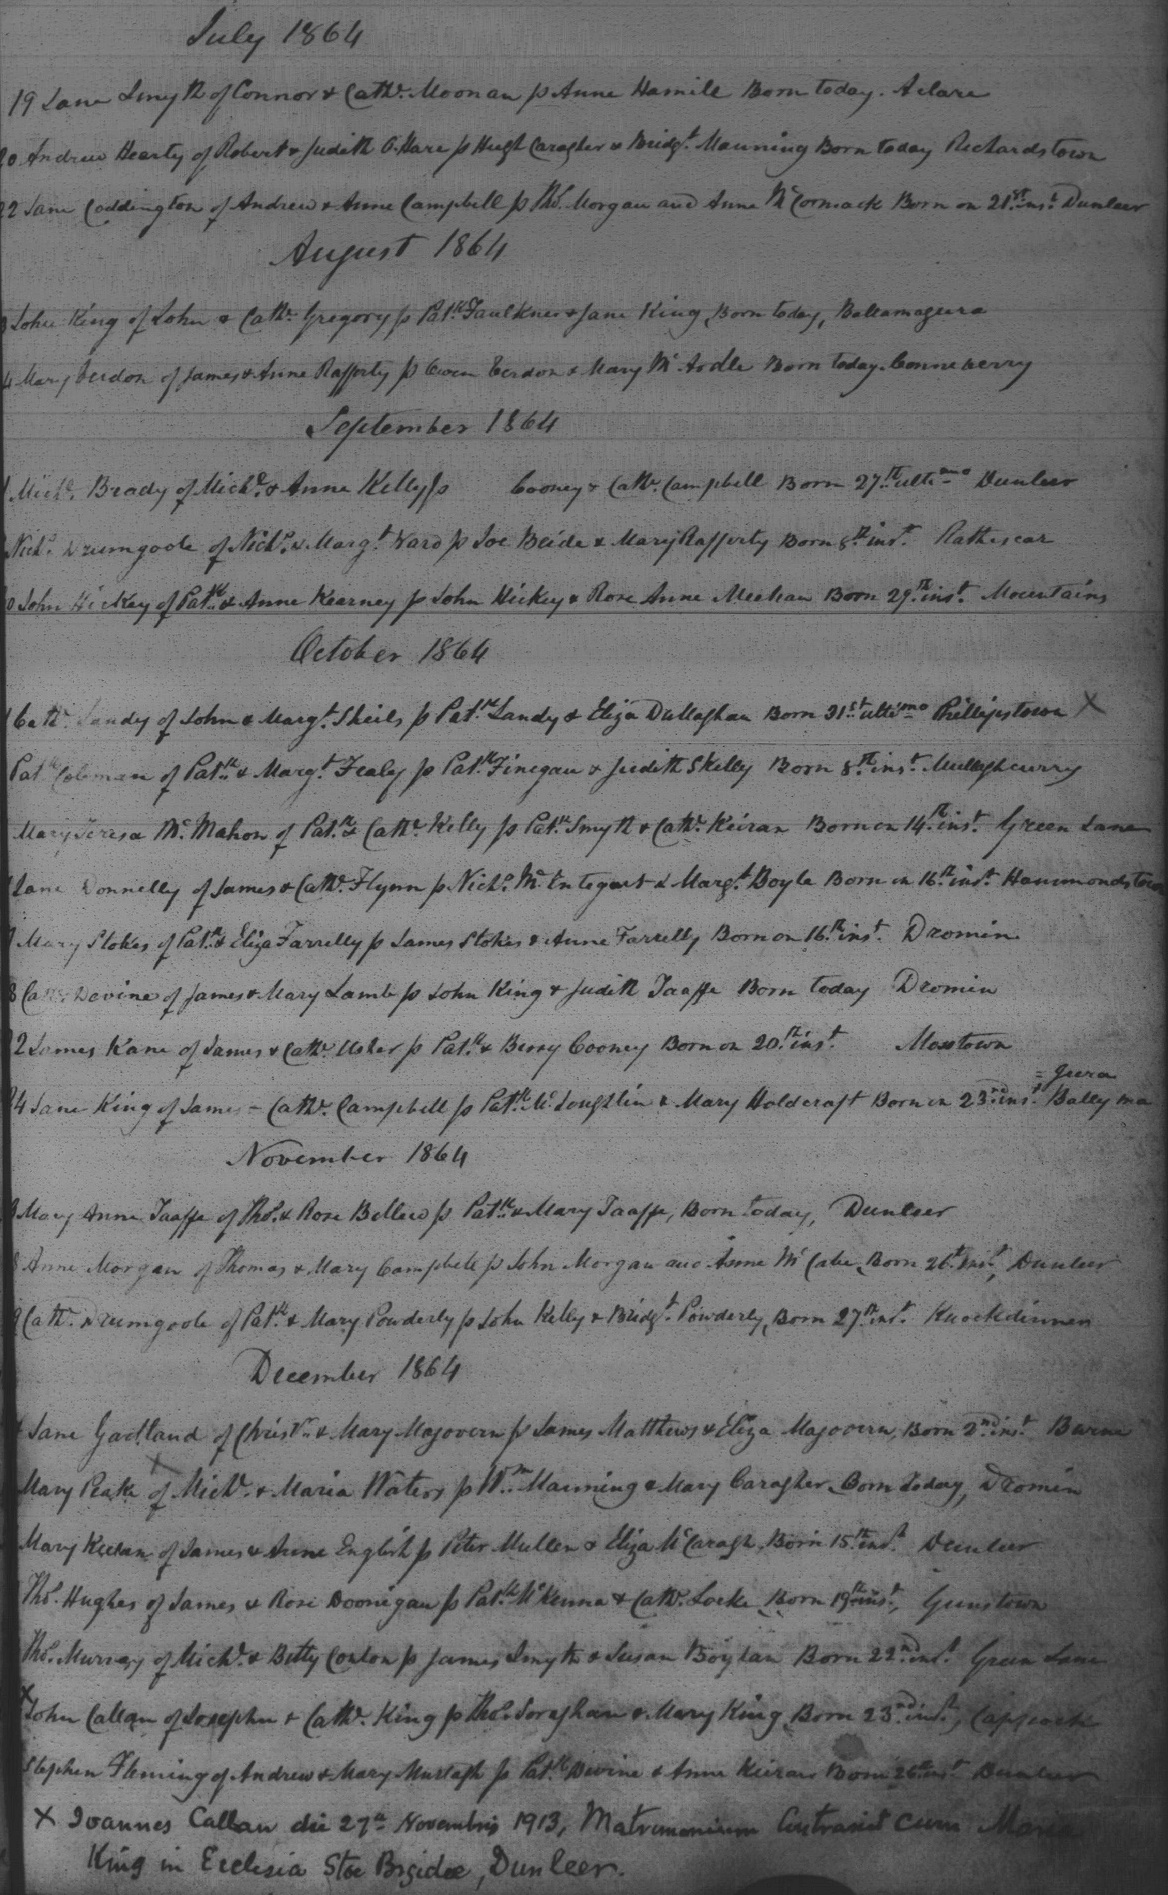 July 1864
19 Jane Smyth of Connor & Cath: Moonan p Anne Hamill Born today. Aclare
20 Andrew Hearty of Robert & Judith O.Hare p Hugh Caragher & Bridgt Manning Born today Richardstown
22 Jane Coddington of Andrew & Anne Campbell p Thos. Morgan and Anne McCormack Born on 21st inst Dunleer
August 1864
John King of John & Cath: Gregory p Patk Faulkner & Jane King, Born today, Ballamagura
4 Mary Verdon of James & Anne Rafferty p Owen Verdon & Mary McArdle Born today.
September 1864
Michl. Brady of Michl. & Anne Kelly p Cooney & Cath. Campbell Born 27th ultimo Dunleer
Nichs. Drumgoole of Nichs. & Margt. Ward p Joe Beide & Mary Rafferty Born 8th inst. Rathescar
0 John Hickey of Patk & Anne Kearney p John Hickey & Rose Anne Meehan Born 29th inst. Mountains
October 1864
Cath. Landy of John & Margt. Sheils p Patk Landy & Eliza Dullaghan Born 31st ultimo Phillipstown X
Patk Coleman of Patk & Margt. Fealy p Patk Finegan & Judith Skelly Born 8th inst. Mullaghcurry
Mary Teresa McMahon of Patk & Cath: Kelly p Patk Smyth & Cath: Keiran Born on 14th inst. Green Lane
Jane Donnelly of James & Cath: Flynn p Nichs. McEntegart & Margt. Boyle Born on 16th inst. Hammondstown
Mary Stokes of Patk & Eliza Farrelly p James Stokes & Anne Farrelly Born on 16th inst. Dromin
8 Cath: Devine of James & Mary Lamb p John King & Judith Taaffe Born today Dromin
22 James Kane of James & Cath: Usher p Patk & Bessy Cooney Born on 20th inst. Mosstown
= gura
24 Jane King of James - Cath: Campbell p Patk McLoughlin & Mary Holdcraft Born on 23rd inst Bally ma
November 1864
Mary Anne Taaffe of Thos. & Rose Bellew p Patk & Mary Taaffe, Born today, Dunleer
8 Anne Morgan of Thomas & Mary Campbell p John Morgan and Anne McCabe, Born 26th inst, Dunleer
9 Cath. Drumgoole of Patk & Mary Powderly p John Kelly & Bridgt. Powderly, Born 27th inst. Knockdinnen
December 1864
Jane Gartland of Christr. & Mary Magovern p James Matthews & Eliza Magovern, Born 2nd inst
X
Mary Peake of Michl. & Maria Waters p Wm Manning & Mary Caragher, Born today, Dromin
Mary Keelan of James & Anne English p Peter Mullen & Eliza McCaragh, Born 15th inst Dunleer
Thos. Hughes of James & Rose Doonigan p Patk McKenna & Cath: Locke Born 19th inst, Gunstown
Thos. Murray of Michl. & Betty Conlon p James Smyth & Susan Boylan Born 22nd inst Green Lane
X
John Callan of Joseph & Cath: King p Thos. Soraghan & Mary King, Born 23rd inst, Cappocke
Stephen Fleming of Andrew & Mary Murtagh p Patk Divine & Anne Keiran Born 26th inst Dunleer
X Joannes Callan die 27a Novembris 1913, Matrimonium Contraxit cum Maria
King in Ecclesia Stae Brigidae, Dunleer.